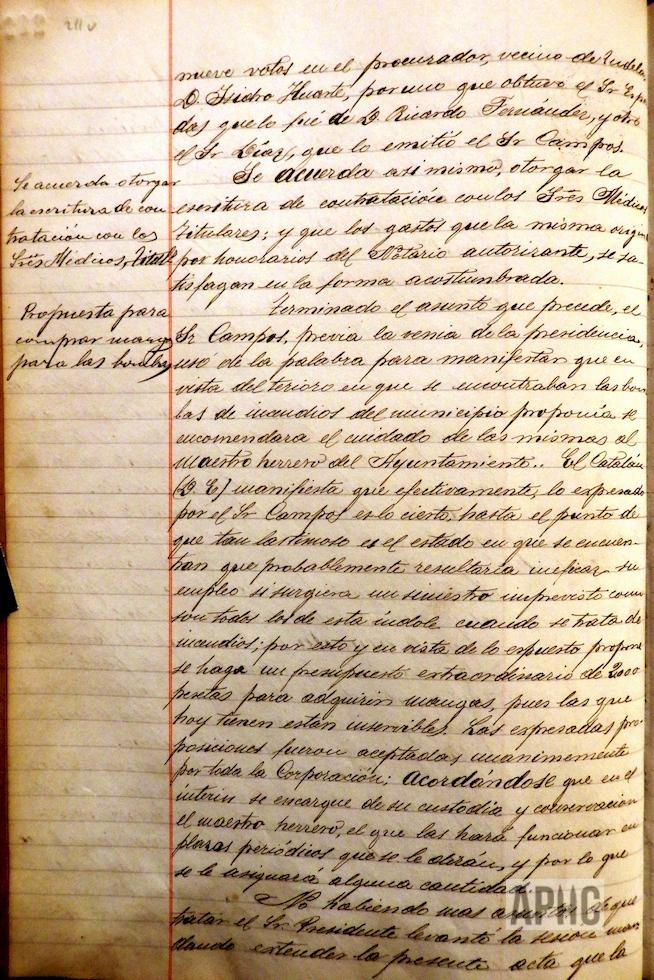 211 v
nueve votos en el procurador, vecino de Tudela
D. Isidro Huarte, por uno que obtuvo el Sr
das que lo fué de D. Ricardo Fernández, y otro
el Sr Díaz, que lo emitió el Sr Campos.
Se acuerda asi mismo, otorgar la
escritura de contratación con los Sres Médicos
titulares; y que los gastos que la misma origine
por honorarios del Notario autorizante, se sa-
tisfagan en la forma acostumbrada.
Terminado el asunto que precede, el
Sr Campos, previa la venia de la presidencia,
usó de la palabra para manifestar que en
vista del terioro en que se encontraban las bom
bas de incendios del municipio proponía se
encomendara el cuidado de las mismas al
Maestro herrero del Ayuntamiento.. El Catalán
(D. E) manifiesta que efectivamente, lo expresado
por el Sr Campos es lo cierto, hasta el punto de
que tan lastimoso es el estado en que se encuen-
tran que probablemente resultaría ineficaz su
empleo si surgiera un siniestro imprevisto como
son todos los de esta índole cuando se trata de
incendios; por esto y en vista de lo expuesto propone
se haga un presupuesto extraordinario de 2000
pesetas para adquirir mangas, pues las que
hoy tienen están inservibles. Las expresadas pro-
posiciones fueron aceptadas unanimemente
por toda la Corporación; acordándose que en el
ínterin se encargue de su custodia y conservación
el maestro herrero, el que las hará funcionar en
plazos periódicos que se le dirán, y por lo que
se le asignará alguna cantidad.
No habiendo mas asuntos de que
tratar el Sr. Presidente levantó la sesion man
dando extender la presente acta que la
Se acuerda otorgar
la escritura de con
tratación con los
Sres Médicos
Propuesta para
comprar mangas
para las bombas
APHG